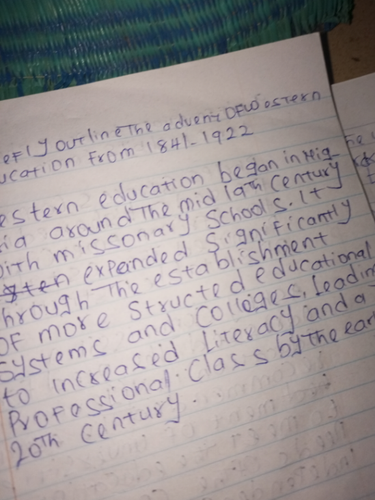 eFly outline The advent OF Western
ucation From 1841-1922
estern education began in Nig-
ria around The mid 19th Century
with missonary Schools. It
expanded Significantly
hrough The establishment
OF more Structed educational
Systems and Colleges, leading
to increased literacy and a
Professional Class by The earl
20th Century.